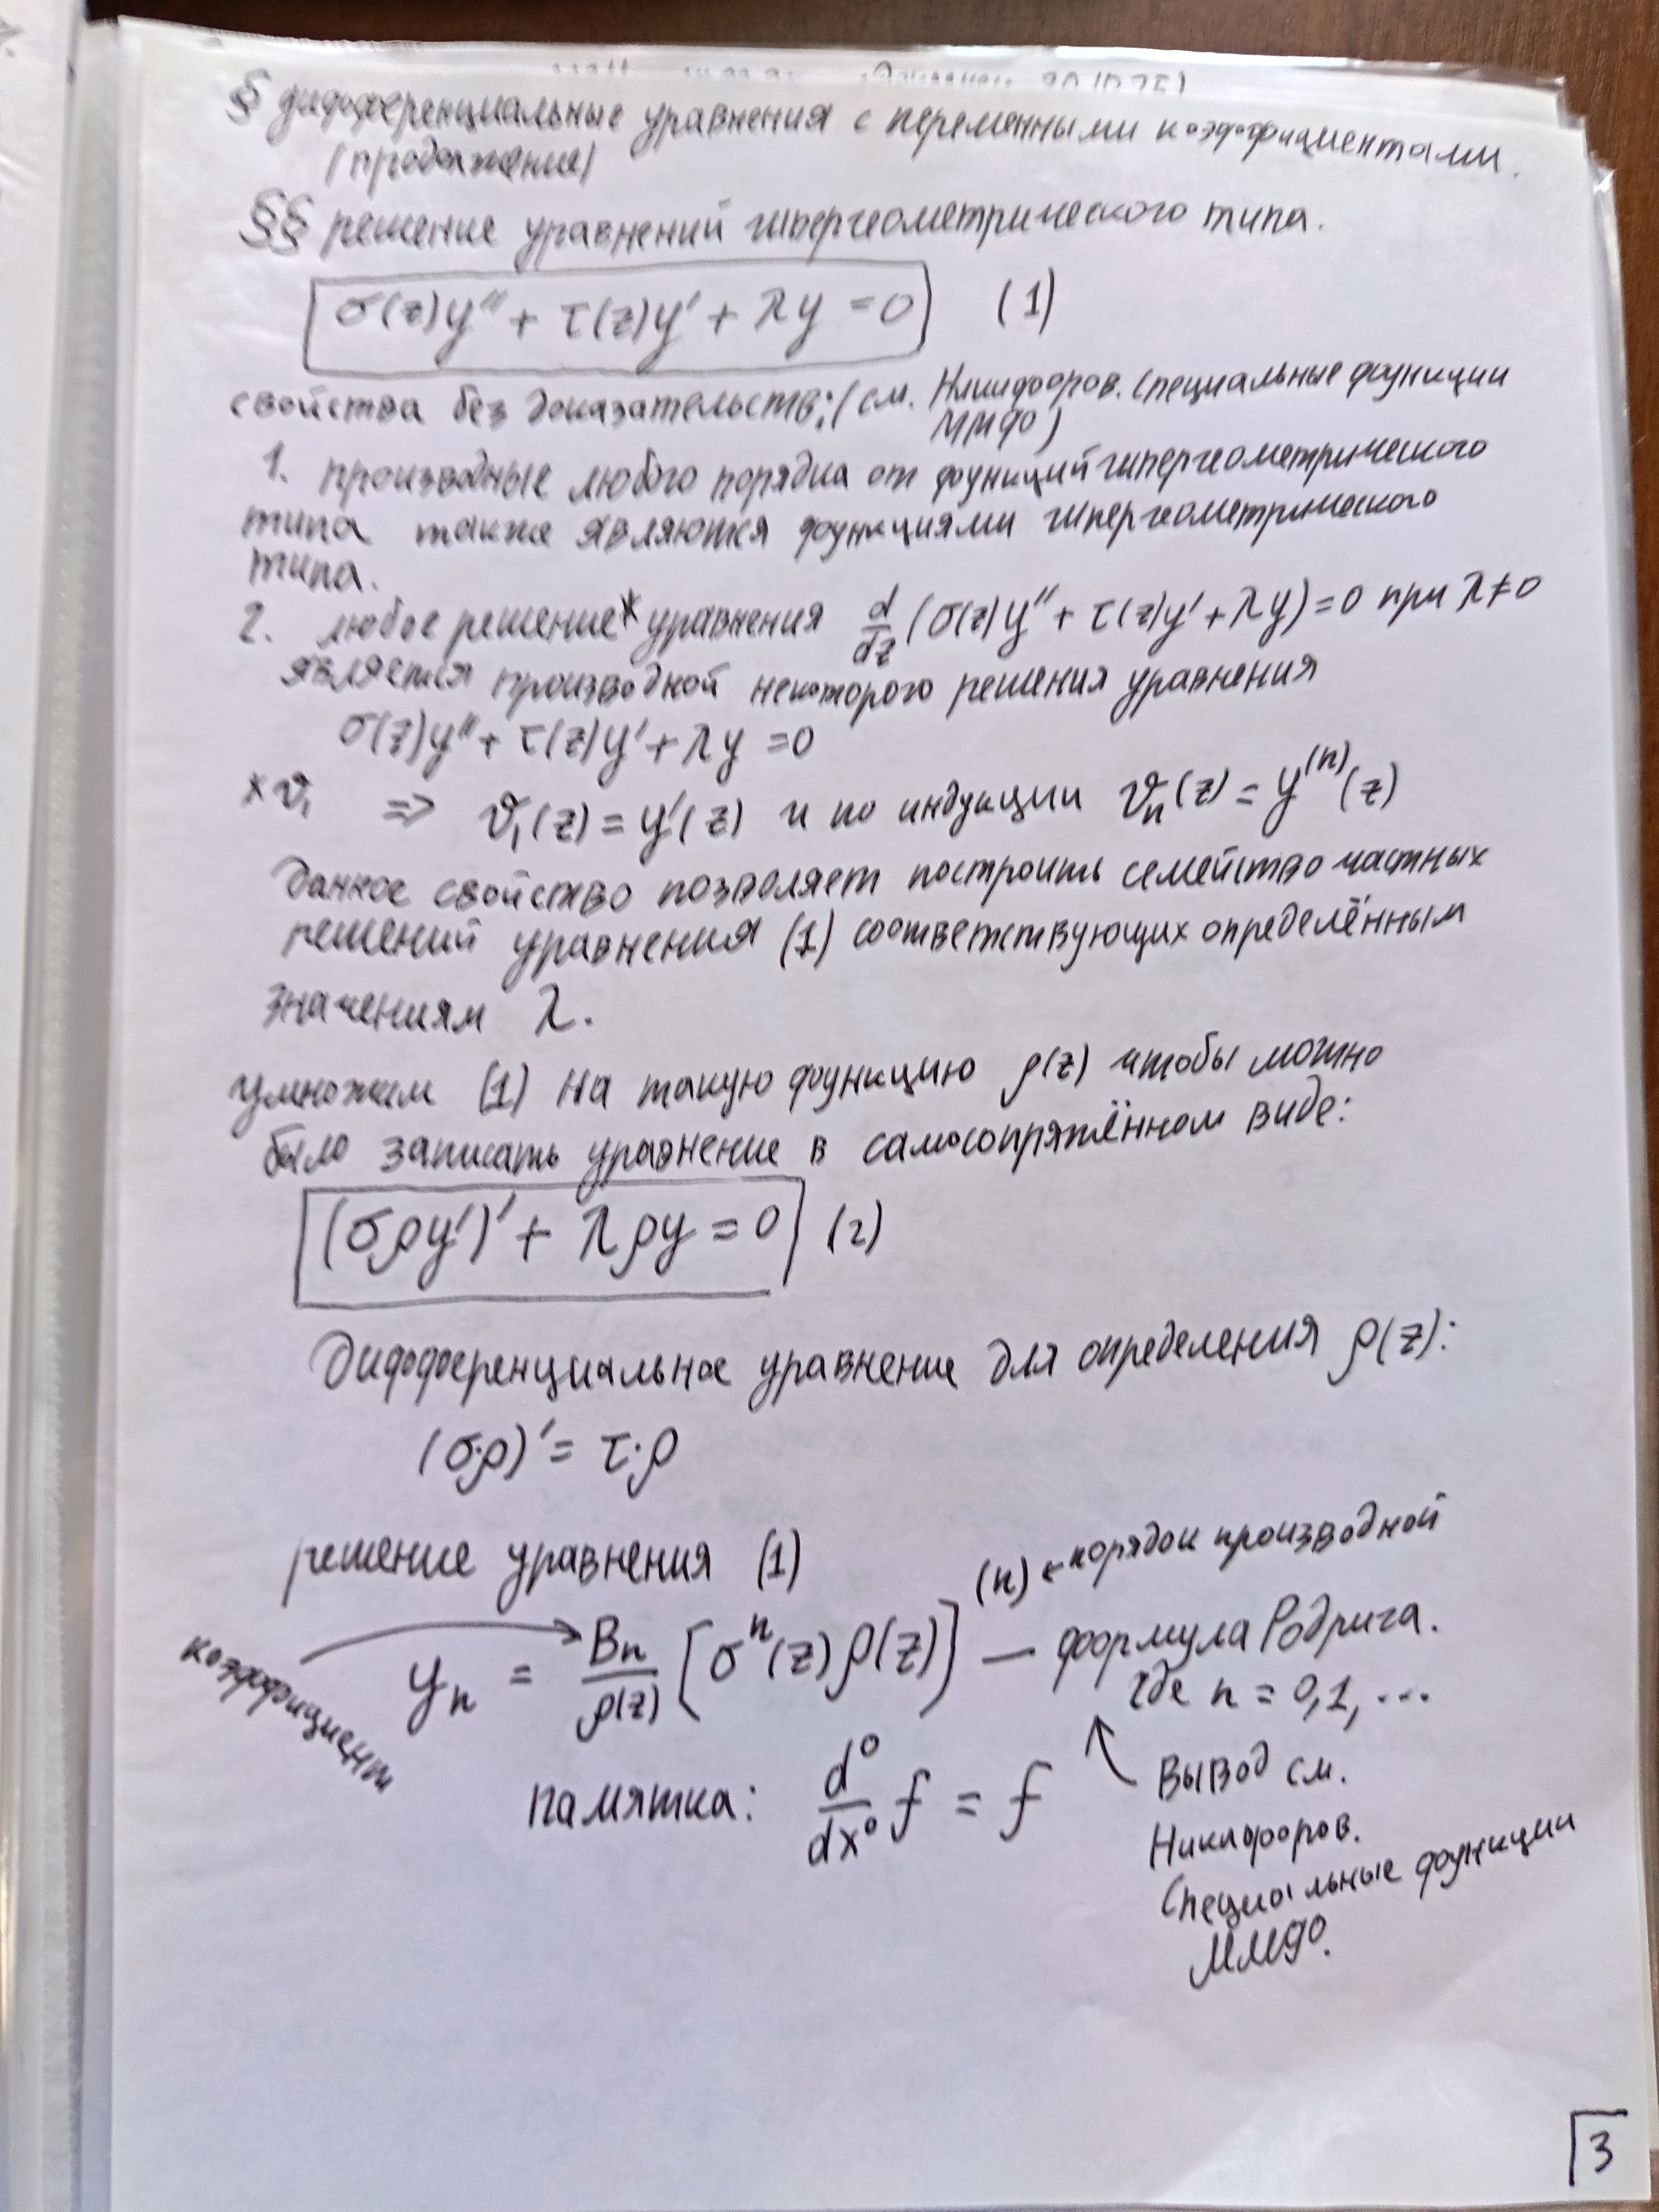 § дифференциальные уравнения с переменными коэффициентами.
(продолжение)
§§ решение уравнений гипергеометрического типа.
σ(z)y'' + τ(z)y' + λy = 0 (1)
свойства без доказательств: (см. Никифоров. Специальные функции
ММФ)
1. производные любого порядка от функций гипергеометрического
типа также являются функциями гипергеометрического
типа.
2. любое решение* уравнения d/dz (σ(z)y'' + τ(z)y' + λy) = 0 при λ≠0
является производной некоторого решения уравнения
σ(z)y'' + τ(z)y' + λy = 0
*v₁ ⇒ v₁(z) = y'(z) и по индукции vₙ(z) = y⁽ⁿ⁾(z)
Данное свойство позволяет построить семейство частных
решений уравнения (1) соответствующих определённым
значениям λ.
умножим (1) на такую функцию ρ(z) чтобы можно
было записать уравнение в самосопряжённом виде:
(σρy')' + λρy = 0 (2)
Дифференциальное уравнение для определения ρ(z):
(σ·ρ)' = τ·ρ
решение уравнения (1)
(n) ← порядок производной
коэффициент
yₙ = Bₙ/ρ(z) [σⁿ(z)ρ(z)] — формула Родрига.
где n = 0,1,...
памятка: d⁰/dx⁰ f = f
Вывод см.
Никифоров.
Специальные функции
ММФ.
3